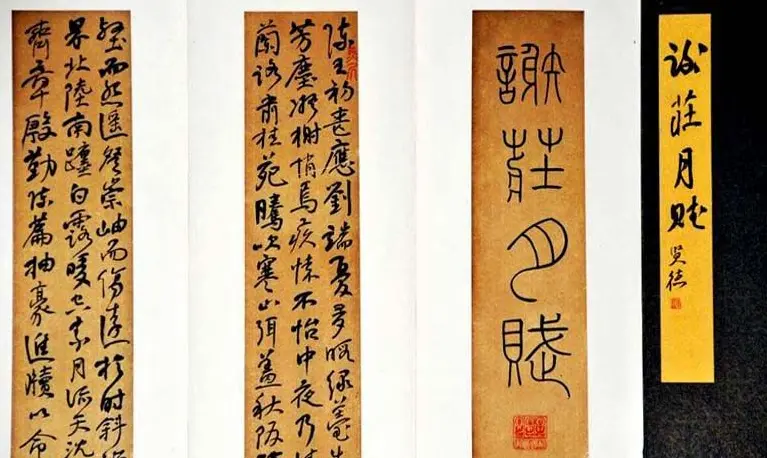 謝莊月賦
謝莊月賦
陳王初喪應劉端憂多暇綠苔生
芳塵凝榭悄焉疚懷不怡中夜乃清
蘭路肅桂苑騰吹寒山弭蓋秋阪
壑而怨遙登崇岫而傷遠於時斜漢
界北陸南躔白露曖空素月流天沈
齊章殷勤陳篇抽豪進牘以命